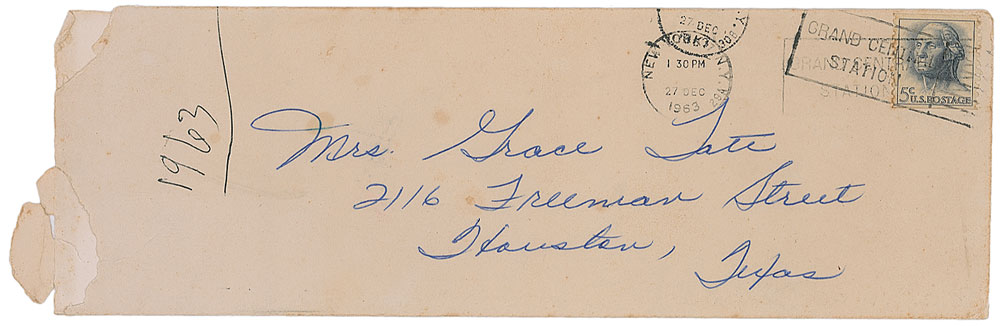 27 DEC
NEW YORK, N.Y.
1 30 PM
27 DEC
1963
GRAND CENTRAL
STATION
GRAND CENTRAL
STATION
5¢
U.S. POSTAGE
1963
Mrs. Grace Tate
2116 Freeman Street
Houston,
Texas